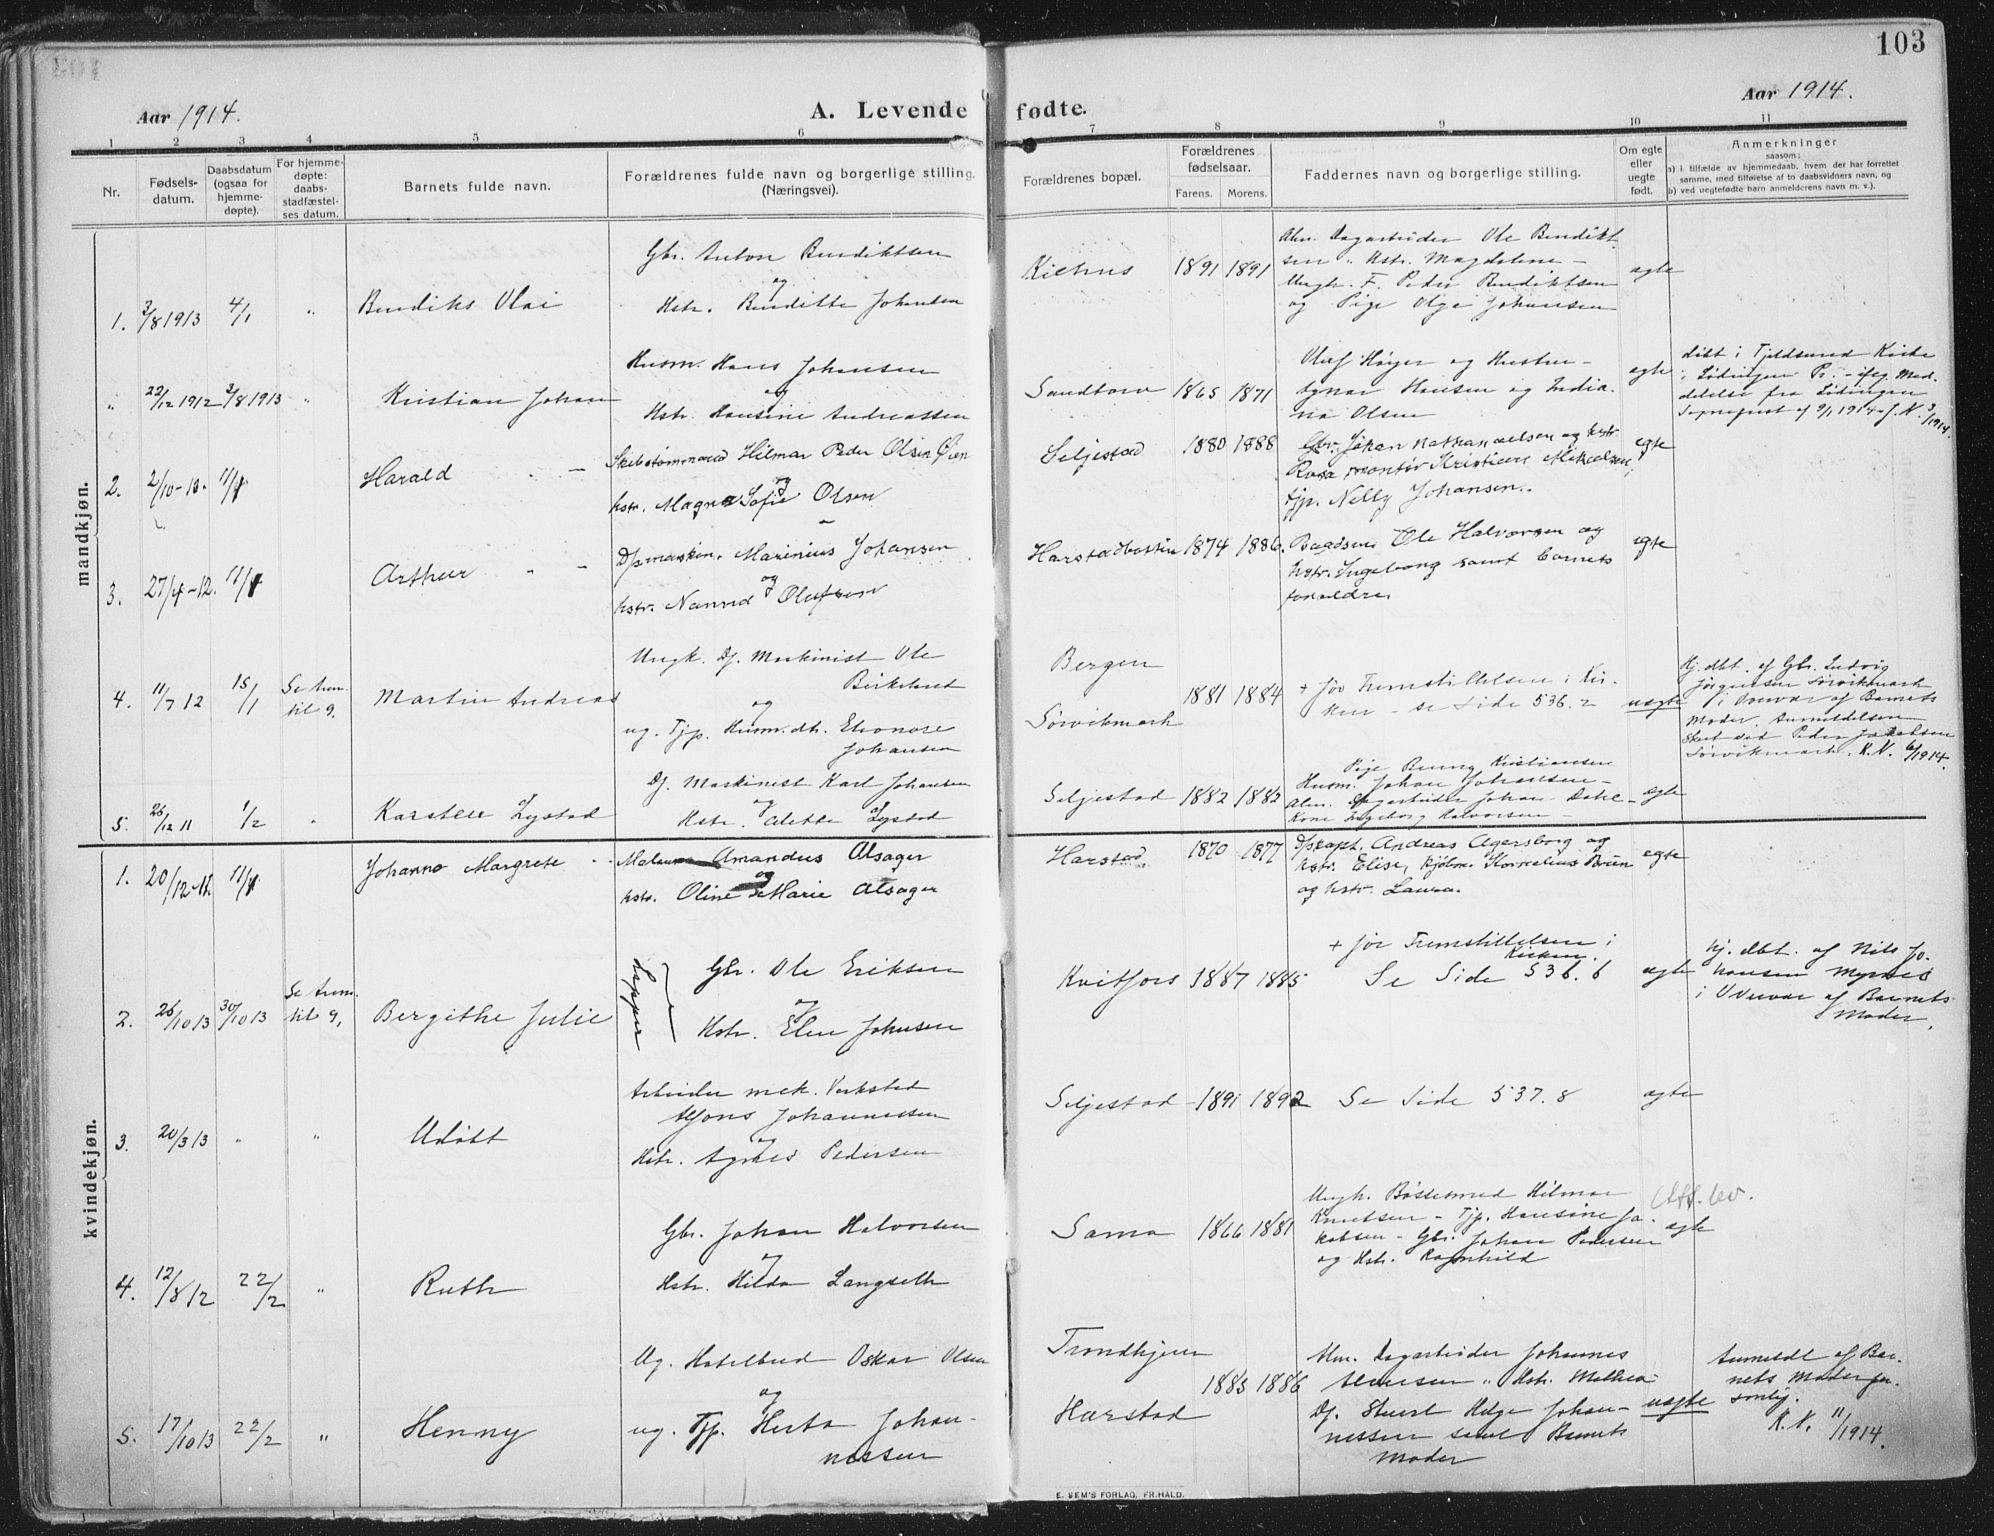 103
Aar 1914.
A. Levende fødte.
Aar 1914.
1 2 3 4 5 6 7 8 9 10 11
Nr.
Fødsels-
datum.
Daabsdatum
(ogsaa for
hjemme-
døpte).
For hjemme-
døpte:
daabs-
stadfæstel-
ses datum.
Barnets fulde navn.
Forældrenes fulde navn og borgerlige stilling.
(Næringsvei).
Forældrenes bopæl.
Forældrenes
fødselsaar.
Farens. Morens.
Faddernes navn og borgerlige stilling.
Om egte
eller
uegte
født.
Anmerkninger
saasom:
a) i tilfælde av hjemmedaab, hvem der har forrettet
samme, med tilføielse af to daabsvidners navn, og
b) ved uegtefødte barn anmelderens navn m. v.).
mandkjøn.
1. 3/8 1913 4/1 " Bendiks Olai
Gbr. Anton Bendiktsen
og
Hstr. Benditte Johansen
Kilhus 1891 1891
Alm. Dagarbeider Ole Bendikt
sen " Hstr. Magdelene -
Ungk. F. Peder Bendiktsen
og Pige Olga Johansen
ægte
" 22/12 1912 3/8 1913 " Kristian Johan
Husm. Hans Johansen
og
Hstr. Hansine Andreassen
Sandtorv 1865 1871
Oluf Høyer og Hustru -
Agnar Hansen og India-
na Olsen
ægte
døbt i Tjeldsund Kirke
i Lødingen Pr. - iføg. Med-
delelse fra Lødingen
Sogneprest af 9/1 1914 - J. N. 3/1914.
2. 2/10-13. 11/1 Harald " -
Skibstømmermand Hilmar Peder Olsen Øien
og
hstr. Magna Sofie Olsen
Seljestad 1880 1888
Gbr. Johan Nathanaelsen og hstr.
Rosa montør Kristian Mikalsen,
tjp. Nelly Johansen.
egte
3. 27/4-12. 11/1 Arthur " -
D/smaskin. Marinius Johansen
og
hstr. Nanna Olufsen
Harstadbotten 1874 1886.
Baadsm. Ole Halvorsen og
hstr. Ingeborg samt barnets
forældre
egte
4. 11/7 12 15/1 Se frem. til 9. Martin Andreas
Ungk. Df. Maskinist Ole
Birkeland
og
ug. Tjp. Husm. dtr. Eleonore
Johansen
Bergen
Sørvikmark
1881 1884
+ før Fremstillelsen i Kir-
ken - se Side 536. 2
uægte
Hj. dbt. af Gbr. Ludvig
Jørgensen Sørvikmark
i Overvær af Barnets
Moder. Anmeldelsen
sket ved Peder Jakobsen
Sørvikmark. K. N. 6/1914.
5. 26/12 11 1/2 " Karsten Lystad
Df. Maskinist Karl Johansen
og
Hstr. Alette Lystad
Seljestad 1882 1882
Pige Benny Kristiansen
Husm. Johan Johansen -
Alm. Dagarbeider Johan Dahl -
Kone Ingeborg Halvorsen -
egte
kvindekjøn.
1. 20/12 11. 11/1 Johanna Margrete "
Amandus Alsager
og
hstr. Oline Marie Alsager
Harstad 1870 - 1877
D/skapt. Andreas Agersborg og
hstr. Elise, kjøbm. Kornelius Bruun
og hstr. Laura.
egte
2. 26/10 13 30/10 13 Se frem. til 9, Bergithe Julie
Lapper
Gbr. Ole Eriksen
og
Hstr. Elen Johnsen
Kvitfors 1887 1885
+ før Fremstillelsen i
Kirken.
Se Side 536. 6
ægte
hj. dbt. af Nils Jo-
hansen Myrnes
i Overvær af Barnets
Moder,
3. 20/3 13 " " Udøbt
Arbeider mek. Verksted
Alfons Johannessen
og
Hstr. Agnes Pedersen
Seljestad 1891 1892
Se Side 537. 8
ægte
4. 12/8 12 22/2 " Ruth
Gbr. Johan Halvorsen
og
Hstr. Hilda Langseth
Sama 1866 1881
Ungk. Bøssesmed Hilmar
Knutsen - Tjp. Hansine Ja-
kobsen - Gbr. Johan Pedersen
og Hstr. Ragnhild
ægte
Att. lev.
5. 17/10 13 22/2 " Henny
Ug. Hotelbud Oskar Olsen
og
ug. Tjp. Herta Johan-
nessen
Trondhjem
Harstad
1885 1886
Alm. Dagarbeider Johannes
" Hstr. Mathea -
Df. Stuert Helge Johan-
nessen samt Barnets
Moder
uægte
Anmeldt af Bar-
nets Moder per-
sonlig.
K. N. 11/1914.
E. SEM'S FORLAG, FR.HALD.